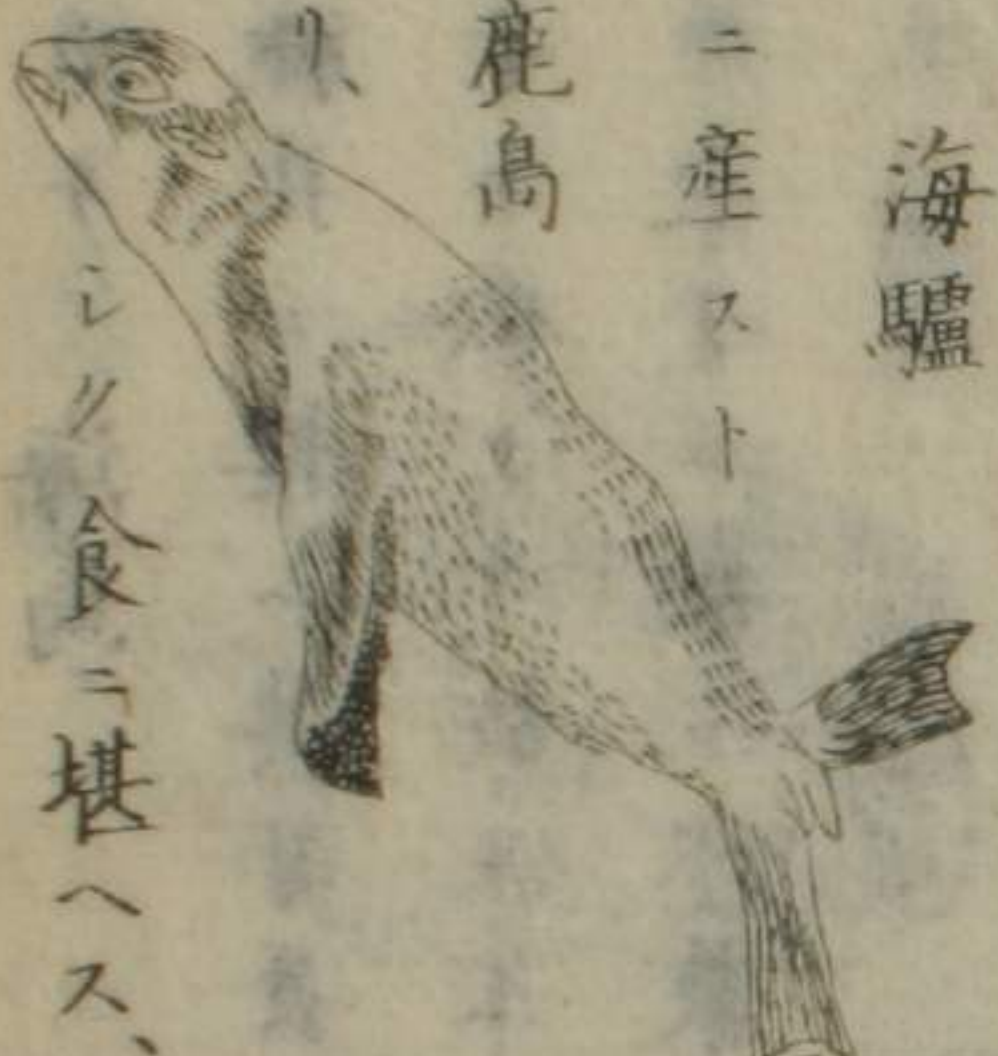 海驢
ニ産スト
鹿島
リ、
シ 食ニ堪ヘス、